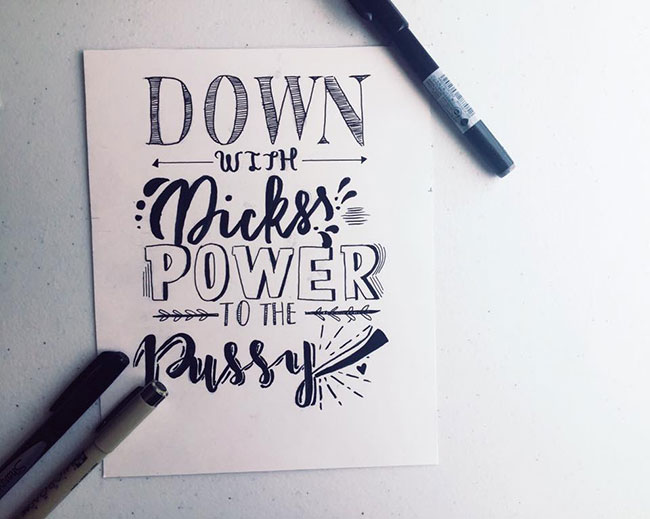 DOWN
WITH
Dickss
POWER
TO THE
Pussy